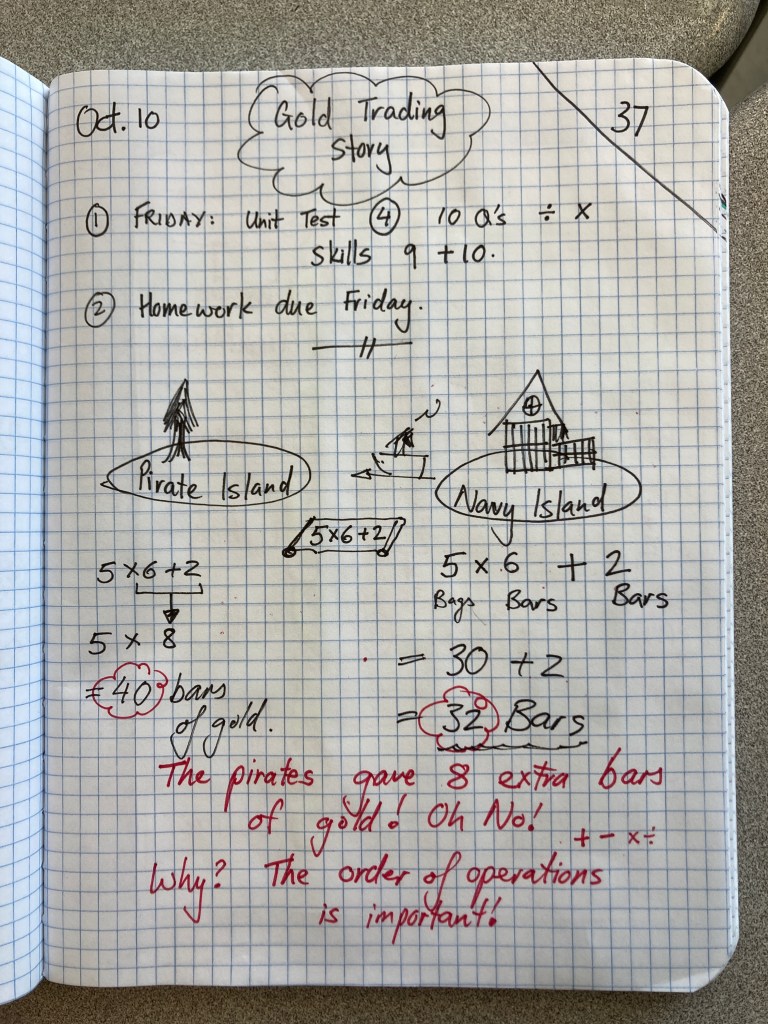 Oct. 10
Gold Trading
Story
37
① FRIDAY: Unit Test ④ 10 Q's ÷ x
Skills 9 + 10.
② Homework due Friday.
Pirate Island
Navy Island
5x6+2
5 x 6 + 2
5 x 8
= 40 bars
of gold.
5 x 6 + 2
Bags Bars Bars
= 30 + 2
= 32 Bars
The pirates gave 8 extra bars
of gold! Oh No!
+ - x ÷
Why? The order of operations
is important!